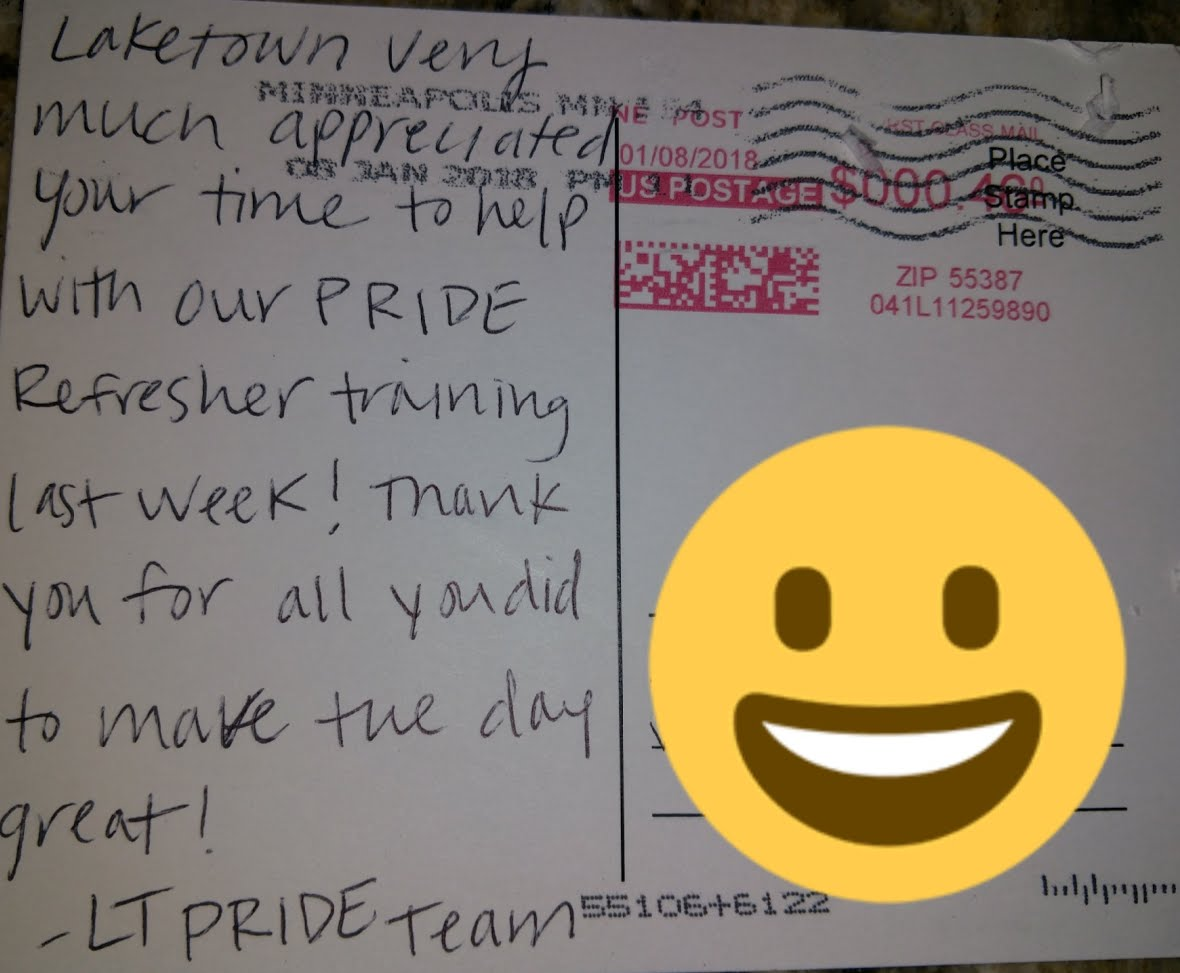 Laketown very
much appreciated
your time to help
with our PRIDE
Refresher training
last week! Thank
you for all you did
to make the day
great!
- LT PRIDE Team
MINNEAPOLIS MN
08 JAN 2018 PM
NE POST
01/08/2018
US POSTAGE
ST-CLASS MAIL
Place
Stamp
Here
ZIP 55387
041L11259890
55106+6122